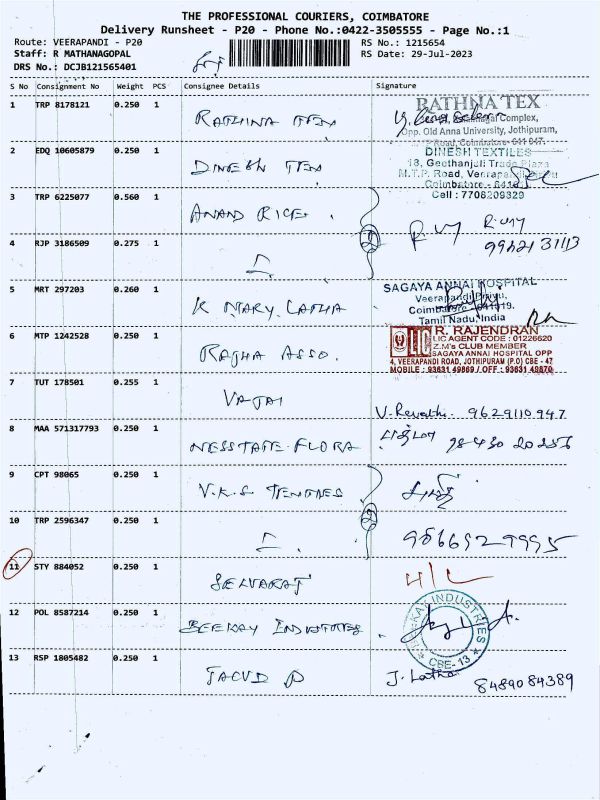 THE PROFESSIONAL COURIERS, COIMBATORE
Delivery Runsheet - P20 - Phone No.:0422-3505555 - Page No.:1
Route: VEERAPANDI - P20
RS No.: 1215654
Staff: R MATHANAGOPAL
RS Date: 29-Jul-2023
DRS No.: DCJB121565401
S No Consignment No Weight PCS Consignee Details Signature
1 TRP 8178121 0.250 1 RATHNA TEX
RATHNA TEX
Complex,
Opp. Old Anna University, Jothipuram,
Road, Coimbatore- 641 047.
2 EDQ 10605879 0.250 1 DINESH TEX
DINESH TEXTILES
18, Geethanjali Trade Plaza
M.T.P. Road, Veerapandi
Coimbatore -
Cell : 7708209329
3 TRP 6225077 0.560 1 ANAND RICE
4 RJP 3186509 0.275 1
2
5 MRT 297203 0.260 1 K MARY LATHA
SAGAYA ANNAI HOSPITAL
Veerapandi
Coimbatore
Tamil Nadu, India
6 MTP 1242528 0.250 1 RAJHA ASSO.
LIC R. RAJENDRAN
LIC AGENT CODE : 01226620
Z.M's CLUB MEMBER
SAGAYA ANNAI HOSPITAL OPP
4, VEERAPANDI ROAD, JOTHIPURAM (P.O) CBE - 47
MOBILE : 93631 49869 / OFF : 93631 49870
7 TUT 178501 0.255 1
V. Revathi. 9629110947
8 MAA 571317793 0.250 1
9 CPT 98065 0.250 1 V.K.S
10 TRP 2596347 0.250 1
2
11 STY 884052 0.250 1 SELVARAJ
12 POL 8587214 0.250 1 BEEKAY INDUSTRIES
INDUSTRIES
CBE-13
13 RSP 1805482 0.250 1
J. Latha 8489084389